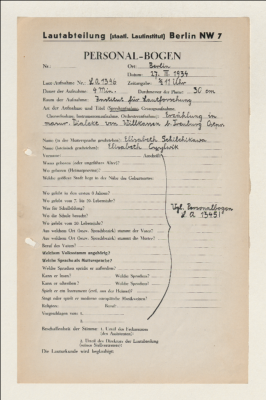 Lautabteilung [staatl. Lautinstitut] Berlin NW 7
PERSONAL-BOGEN
Nr. Ort: Berlin
Datum: 27. III. 1934
Laut-Aufnahme Nr.: LA 1346 Zeitangabe: Uhr
Dauer der Aufnahme: 4 Min. Durchmesser der Platte: 30 cm
Raum der Aufnahme: Institut für Lautforschung
Art der Aufnahme und Titel (Sprechaufnahme, Gesangsaufnahme,
Choraufnahme, Instrumentenaufnahme, Orchesteraufnahme): Erzählung in
Dialekt von b.
Name (in der Muttersprache geschrieben): Elisabeth
Name (lateinisch geschrieben): Elisabeth
Vorname:
Wann geboren (oder ungefähres Alter)?
Wo geboren (Heimatprovinz)?
Welche größere Stadt liegt in der Nähe des Geburtsortes
Wo gelebt in den ersten 6 Jahren?
Wo gelebt vom 7. bis 20. Lebensjahr?
Was für Schulbildung?
Wo die Schule besucht?
Wo gelebt vom 20. Lebensjahr?
Aus welchem Ort (bzw. Sprachbezirk) stammt der Vater?
Aus welchem Ort (bzw. Sprachbezirk) stammt die Mutter?
vgl. Personalbogen
LA 1345!
Beruf des Vaters?
Welchem Volksstamm angehörig?
Welche Sprache als Muttersprache?
Welche Sprachen spricht er außerdem?
Kann er lesen? Welche Sprachen?
Kann er schreiben? Welche Sprachen?
Spielt er ein Instrument (evtl. aus der Heimat)?
Singt oder spielt er moderne europäische Musikweisen?
Religion: Beruf:
Vorgeschlagen von: 1.
2.
Beschaffenheit der Stimme: 1. Urteil des Fachmannes
(des Assistenten):
2. Urteil des Direktors der Lautabteilung
(seines Stellvertreters):
Die Lauturkunde wird beglaubigt: